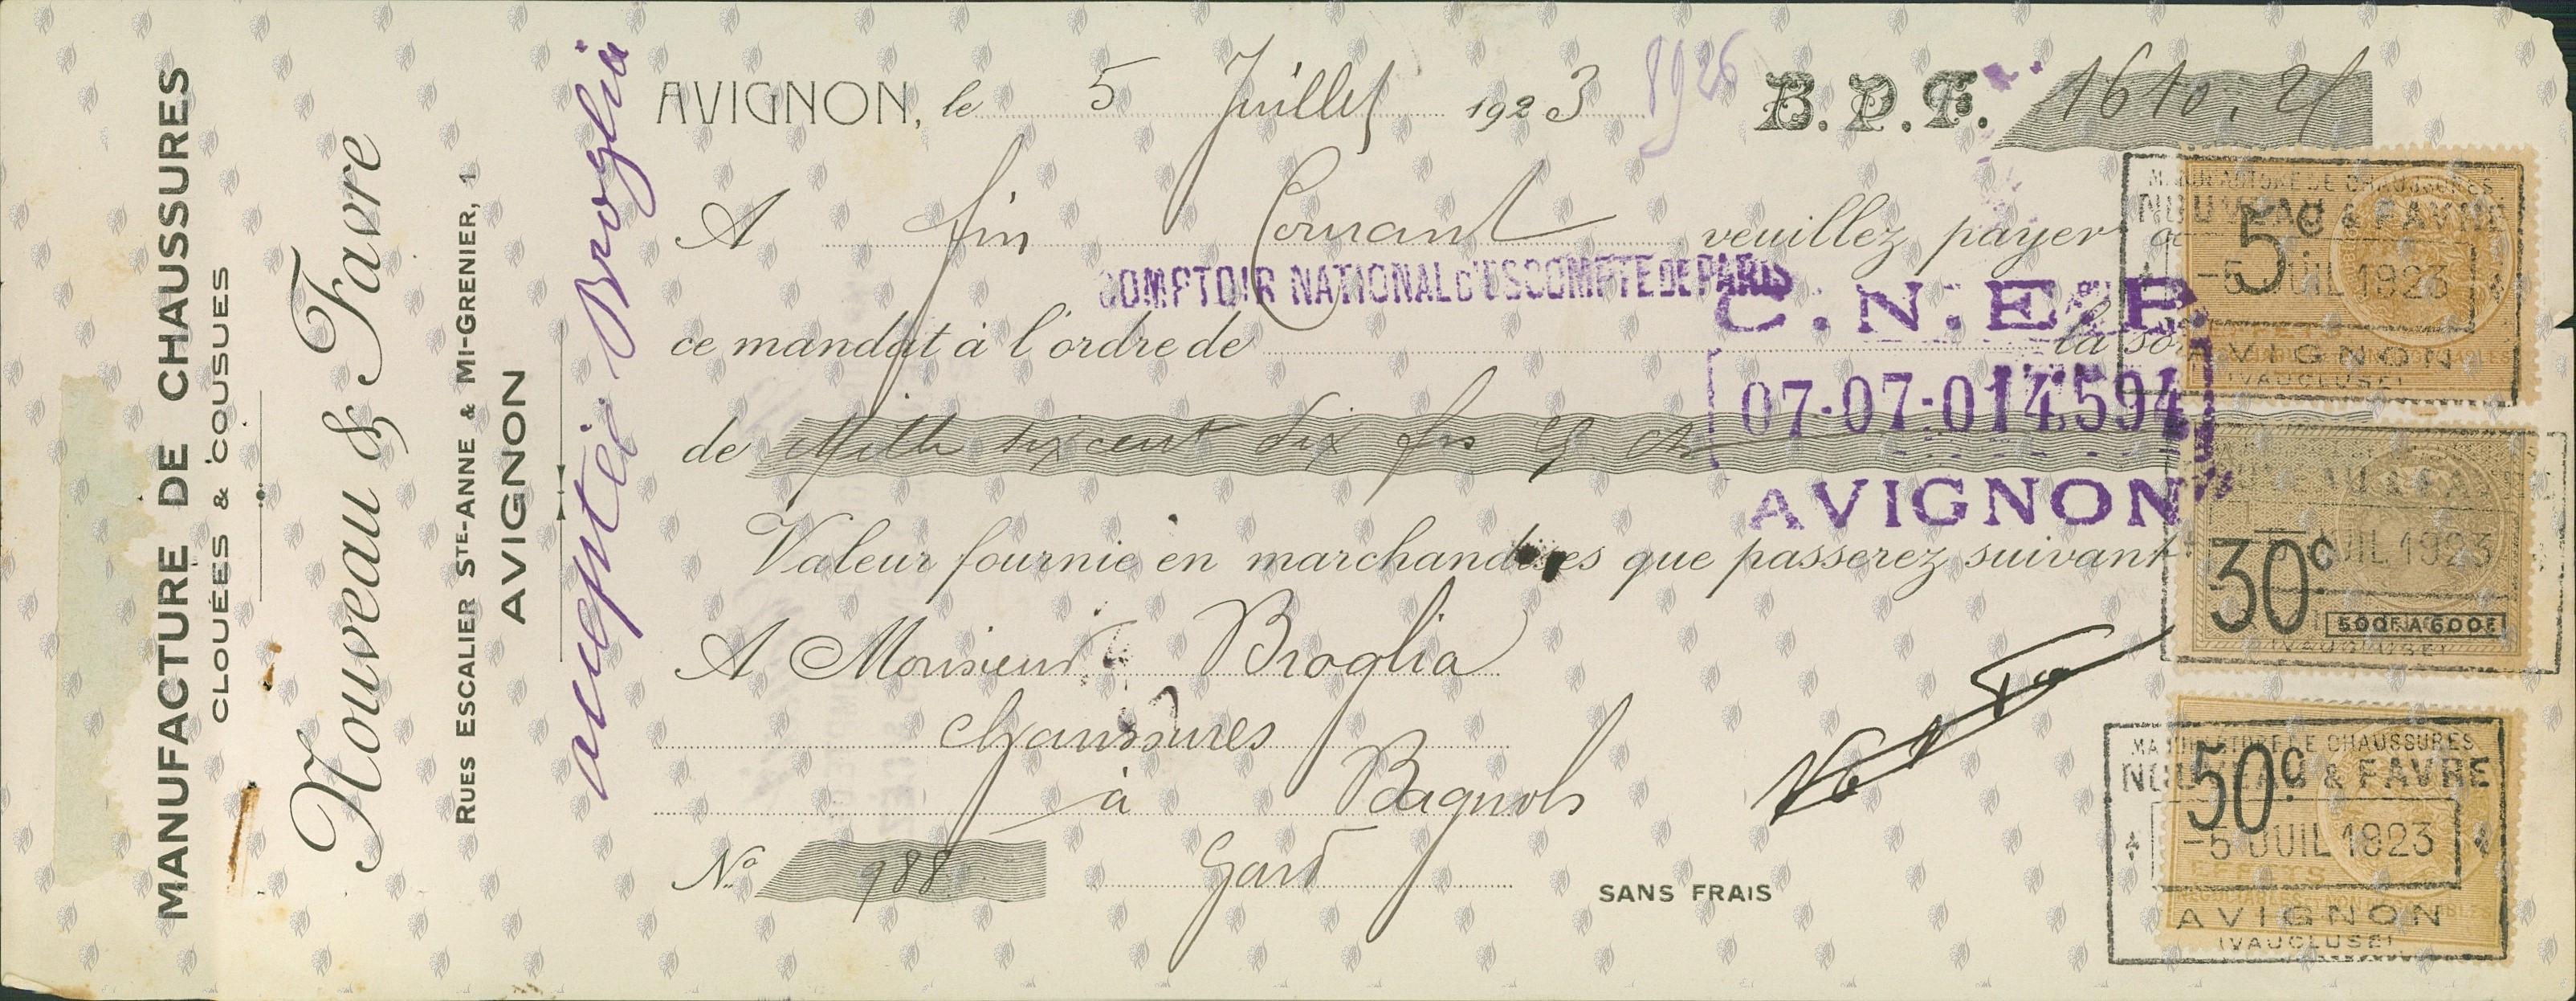 MANUFACTURE DE CHAUSSURES
CLOUÉES & COUSUES
Nouveau & Favre
RUES ESCALIER STE-ANNE & MI-GRENIER, 1
AVIGNON
acceptée Broglia
AVIGNON, le 5 Juillet 1923 8926 B.P.F. 1610.25
A fin Courant veuillez payer
COMPTOIR NATIONAL D'ESCOMPTE DE PARIS
C.N.E.P.
ce mandat à l'ordre de
07·07·014.594
de Mille six cent dix frs
AVIGNON
Valeur fournie en marchandises que passerez suivant
A Monsieur Broglia
chaussures
à Bagnols
Nº 988 Gard
SANS FRAIS
MANUFACTURE DE CHAUSSURES
NOUVEAU & FAVRE
5c
-5 JUIL 1923
AVIGNON
(VAUCLUSE)
30c
JUIL 1923
500F A 600F
(VAUCLUSE)
MANUFACTURE DE CHAUSSURES
NOUVEAU & FAVRE
50c
-5 JUIL 1923
EFFETS
AVIGNON
(VAUCLUSE)